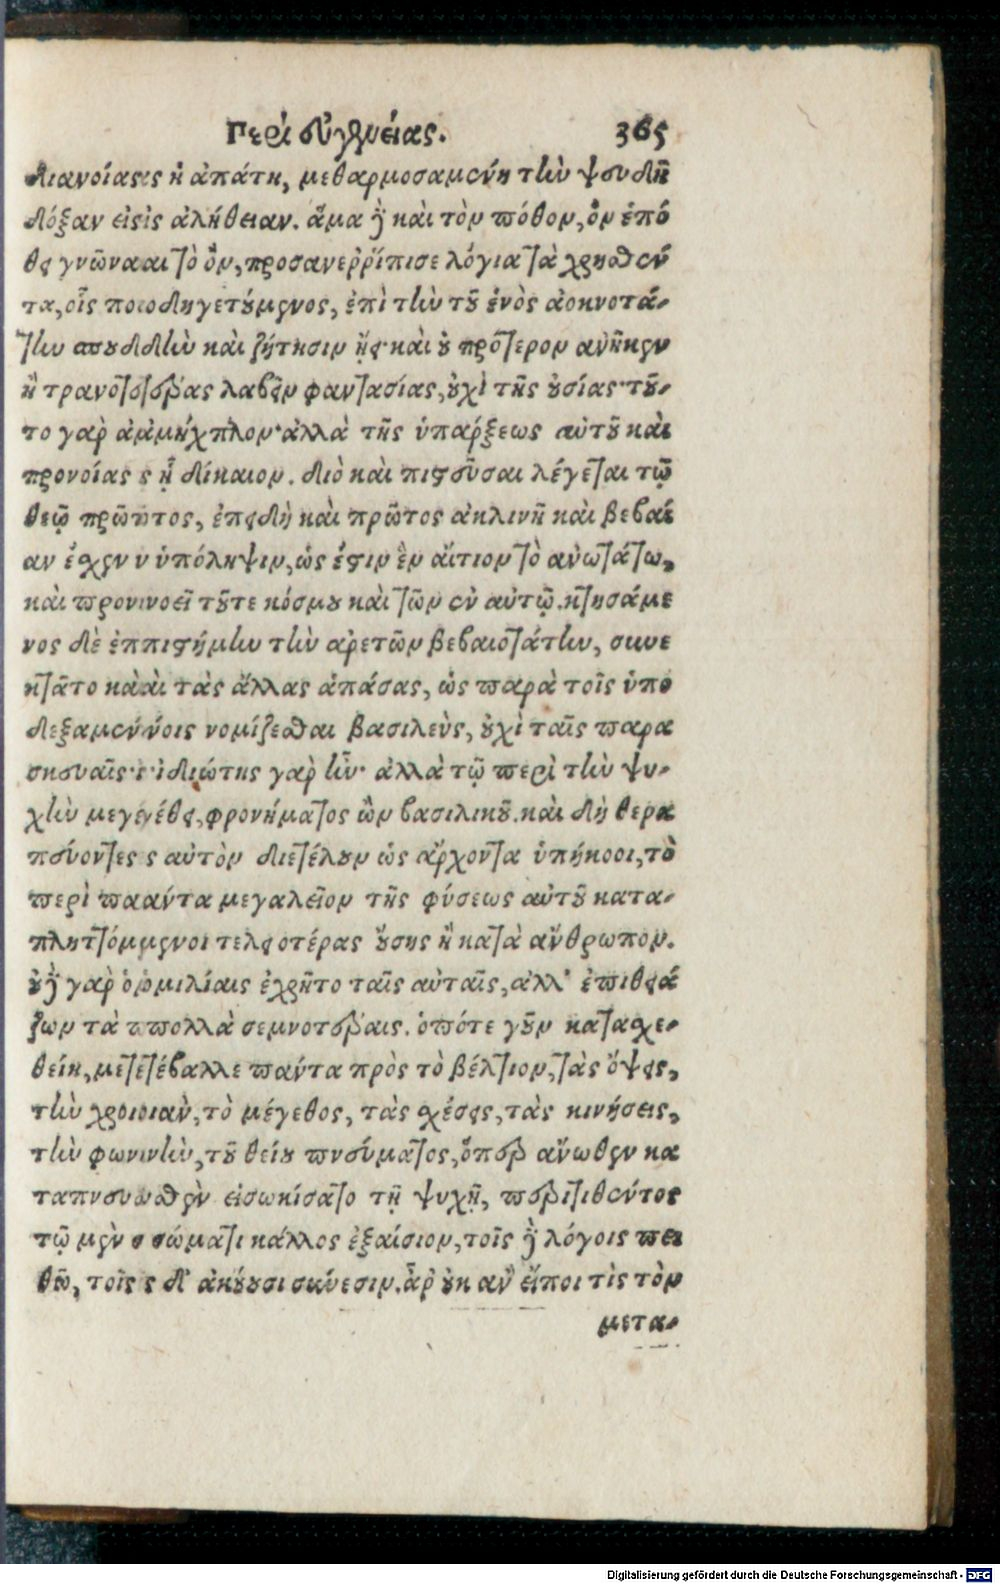 Περὶ εὐγενείας. 365
διανοίαςις ἡ ἀπάτη, μεθαρμοσαμένη τὴν ψευδῆ
δόξαν εἰςὶς ἀλήθειαν. ἅμα δὲ καὶ τὸν πόθον, ὃν ἐπό
θει γνῶνααι τὸ ὂν, προσανερρίπισε λόγια τὰ χρηθέν
τα, οἷς ποιοδηγετούμενος, ἐπὶ τὴν τοῦ ἑνὸς ἀοκνοτά-
την σπουδδὴν καὶ ζήτησιν ᾔει· καὶ οὐ πρότερον ἀνῆκεν
ἢ τρανοττέρας λαβεῖν φαντασίας, οὐχὶ τῆς οὐσίας· τοῦ-
το γὰρ ἀαμήχανον· ἀλλὰ τῆς ὑπάρξεως αὐτοῦ καὶ
προνοίας ς ᾗ δίκαιον. διὸ καὶ πιστεῦσαι λέγεται τῷ
θεῷ πρῶτος, ἐπειδὴ καὶ πρῶτος ἀκλινῆ καὶ βεβαί
αν ἔχεν ν ὑπόληψιν, ὡς ἔστιν ἓν αἴτιον τὸ ἀνωτάτω,
καὶ προνινοεῖ τοῦτε κόσμου καὶ τῶν ἐν αὐτῷ. κτησάμε
νος δὲ ἐππιστήμην τὴν ἀρετῶν βεβαιοτάτην, συνε
κτᾶτο κὰὰὶ τὰς ἄλλας ἁπάσας, ὡς παρὰ τοῖς ὑπο
δεξαμένὑοις νομίζεσθαι βασιλεὺς, οὐχὶ ταῖς παρα
σκευαῖς·ι·ἰδιώτης γὰρ ἦν· ἀλλὰ τῷ περὶ τὴν ψυ-
χὴν μεγεγέθει, φρονήματος ὢν βασιλικοῦ. καὶ δὴ θερα
πεύοντες ς αὐτὸν διετέλουν ὡς ἄρχοντα ὑπήκοοι, τὸ
περὶ παάντα μεγαλεῖον τῆς φύσεως αὐτοῦ κατα-
πληττόμμενοι τελειοτέρας οὔσης ἢ κατὰ ἄνθρωπον.
οὐδὲ γὰρ ὁὁμιλίαις ἐχρῆτο ταῖς αὐταῖς, ἀλλ' ἐπιθειά
ζων τὰ ππολλὰ σεμνοτέραις. ὁπότε γοῦν κατασχε-
θείη, μετετέβαλλε πάντα πρὸς τὸ βέλτιον, τὰς ὄψεις,
τὴν χροιοιὰν, τὸ μέγεθος, τὰς σχέσεις, τὰς κινήσεις,
τὴν φωνινὴν, τοῦ θείου πνεύματος, ὅπερ ἄνωθεν κα
ταπνευωσθὲν εἰσῳκίσατο τῇ ψυχῇ, περιτιθέντος
τῷ μὲν σ σώματι κάλλος ἐξαίσιον, τοῖς δὲ λόγοις πει
θὼ, τοῖς ς δ' ἀκούουσι σύνεσιν. ἆρ' οὐκ ἂν εἴποι τὶς τὸν
μετα-
Digitalisierung gefördert durch die Deutsche Forschungsgemeinschaft - DFG